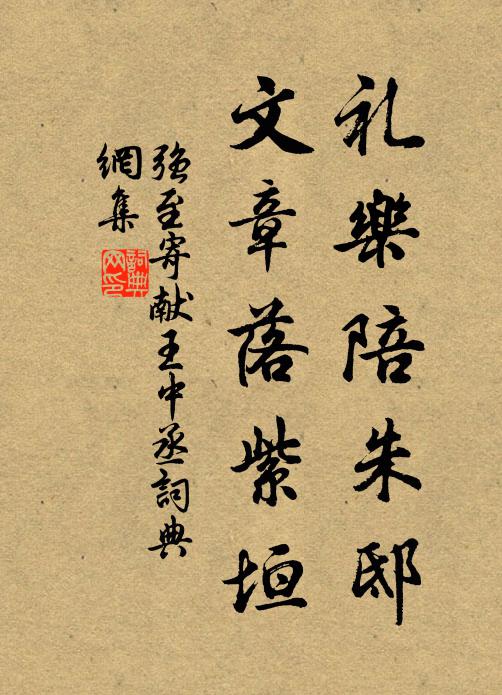 礼樂陪朱邸
文章落紫垣
强至寄献王中丞詞典
網集
詞典網印